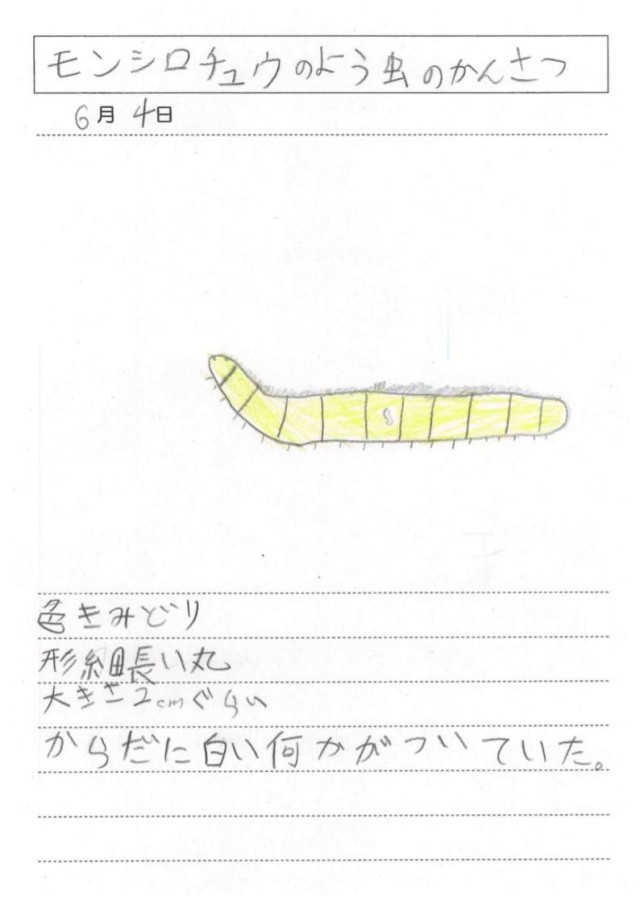 モンシロチュウのよう虫のかんさつ
6月4日
色きみどり
形細長い丸
大きさ2cmぐらい
からだに白い何かがついていた。